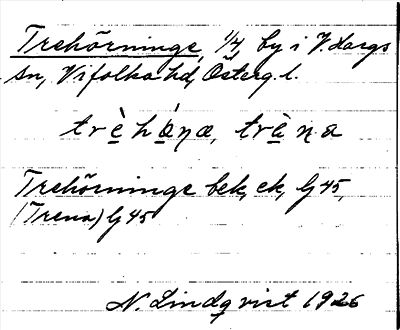 Trehörninge, 1/4, by i V. Hargs
sn, Vifolka hd, Österg. l.
trèhœ̀ŋæ, trèna
Trehörninge bek, ek, Gj 45,
(Trena) Gj 45
N. Lindqvist 1926